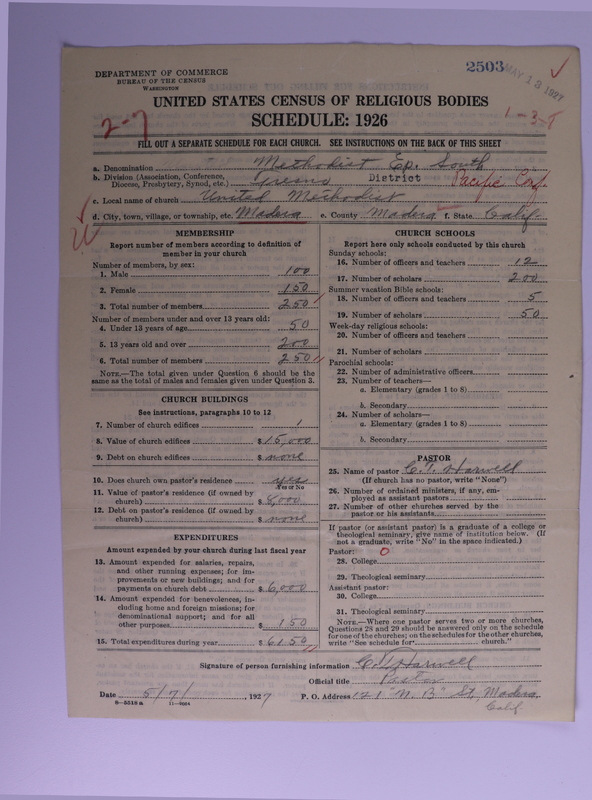 2503
MAY 13 1927
DEPARTMENT OF COMMERCE
BUREAU OF THE CENSUS
WASHINGTON
UNITED STATES CENSUS OF RELIGIOUS BODIES
SCHEDULE: 1926
2-7
1-3-T
FILL OUT A SEPARATE SCHEDULE FOR EACH CHURCH. SEE INSTRUCTIONS ON THE BACK OF THIS SHEET
a. Denomination Methodist Ep. South
b. Division (Association, Conference, Diocese, Presbytery, Synod, etc.) Fresno District Pacific Conf.
c. Local name of church United Methodist
d. City, town, village, or township, etc. Madera e. County Madera f. State Calif.
MEMBERSHIP
Report number of members according to definition of
member in your church
Number of members, by sex:
1. Male 100
2. Female 150
3. Total number of members 250
Number of members under and over 13 years old:
4. Under 13 years of age 50
5. 13 years old and over 200
6. Total number of members 250
NOTE.—The total given under Question 6 should be the
same as the total of males and females given under Question 3.
CHURCH BUILDINGS
See instructions, paragraphs 10 to 12
7. Number of church edifices 1
8. Value of church edifices $15,000
9. Debt on church edifices $ none
10. Does church own pastor's residence yes
Yes or No
11. Value of pastor's residence (if owned by
church) $8,000
12. Debt on pastor's residence (if owned by
church) $ none
EXPENDITURES
Amount expended by your church during last fiscal year
13. Amount expended for salaries, repairs,
and other running expenses; for im-
provements or new buildings; and for
payments on church debt $6,000
14. Amount expended for benevolences, in-
cluding home and foreign missions; for
denominational support; and for all
other purposes 150
15. Total expenditures during year $6150
CHURCH SCHOOLS
Report here only schools conducted by this church
Sunday schools:
16. Number of officers and teachers 12
17. Number of scholars 200
Summer vacation Bible schools:
18. Number of officers and teachers 5
19. Number of scholars 50
Week-day religious schools:
20. Number of officers and teachers
21. Number of scholars
Parochial schools:
22. Number of administrative officers
23. Number of teachers—
a. Elementary (grades 1 to 8)
b. Secondary
24. Number of scholars—
a. Elementary (grades 1 to 8)
b. Secondary
PASTOR
25. Name of pastor C. T. Harwell
(If church has no pastor, write "None")
26. Number of ordained ministers, if any, em-
ployed as assistant pastors
27. Number of other churches served by the
pastor or his assistants
If pastor (or assistant pastor) is a graduate of a college or
theological seminary, give name of institution below. (If
not a graduate, write "No" in the space indicated.)
Pastor: 0
28. College
29. Theological seminary
Assistant pastor:
30. College
31. Theological seminary
NOTE.—Where one pastor serves two or more churches,
Questions 28 and 29 should be answered only on the schedule
for one of the churches; on the schedules for the other churches,
write "See schedule for church."
Signature of person furnishing information C. T. Harwell
Official title Pastor
Date 5/7/, 1927 P. O. Address 121 "N. B" St, Madera,
Calif
8—5518 a 11—9064